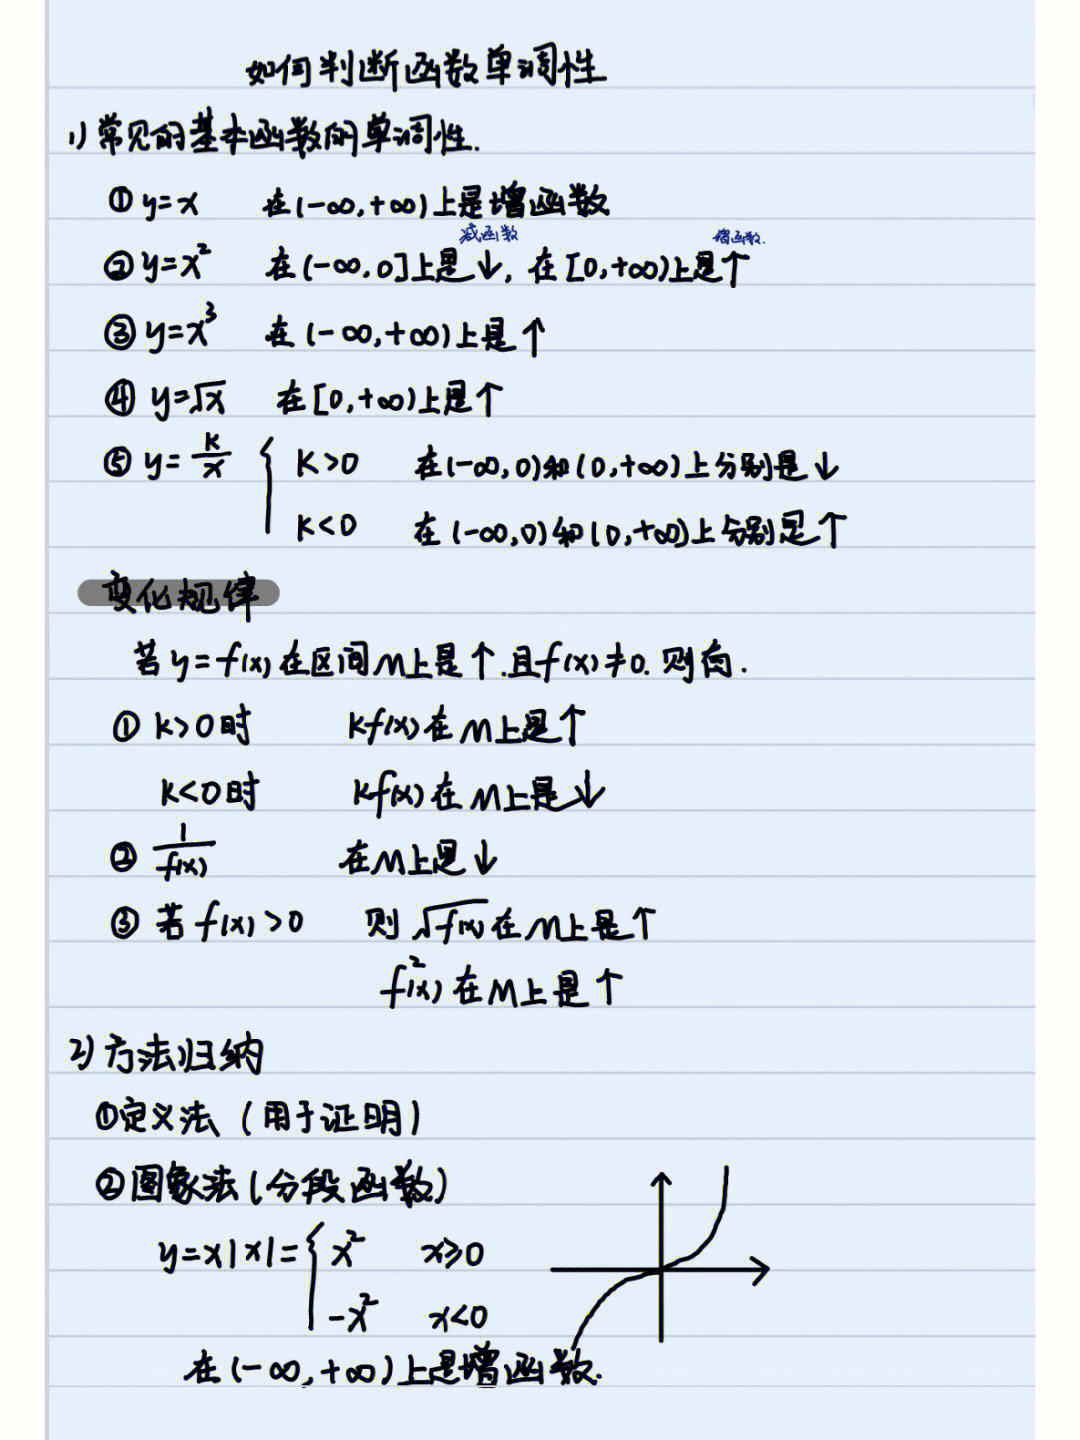 如何判断函数单调性
1) 常见的基本函数的单调性.
① y=x 在(-∞,+∞)上是增函数
减函数 增函数.
② y=x² 在(-∞,0]上是↓, 在[0,+∞)上是↑
③ y=x³ 在(-∞,+∞)上是↑
④ y=√x 在[0,+∞)上是↑
⑤ y=k/x { k>0 在(-∞,0)和(0,+∞)上分别是↓
k<0 在(-∞,0)和(0,+∞)上分别是↑
变化规律
若y=f(x)在区间M上是↑.且f(x)≠0.则有.
① k>0时 kf(x)在M上是↑
k<0时 kf(x)在M上是↓
② 1/f(x) 在M上是↓
③ 若f(x)>0 则√f(x)在M上是↑
f²(x)在M上是↑
2) 方法归纳
①定义法(用于证明)
②图象法(分段函数)
y=x|x|={ x² x≥0
-x² x<0
在(-∞,+∞)上是增函数.